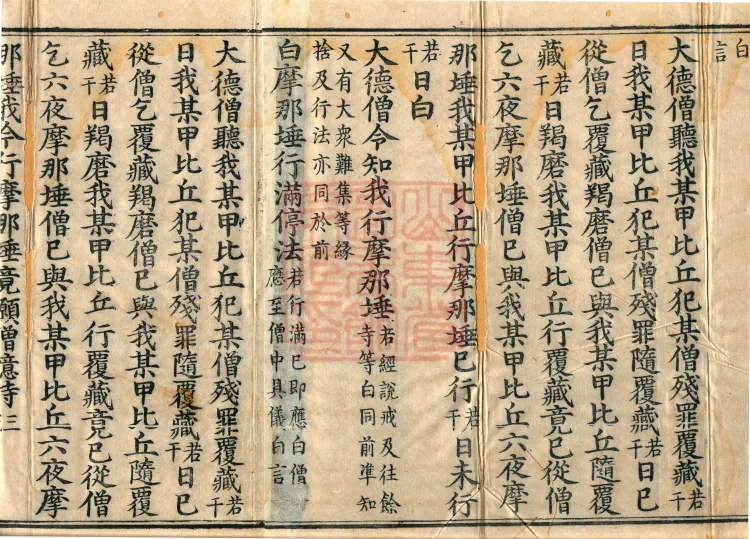 白
言
大德僧聽我某甲比丘犯某僧殘罪覆藏若干
日我某甲比丘犯某僧殘罪隨覆藏若干日已
從僧乞覆藏羯磨僧已與我某甲比丘隨覆
藏若干日羯磨我某甲比丘行覆藏竟已從僧
乞六夜摩那埵僧已與我某甲比丘六夜摩
那埵我某甲比丘行摩那埵已行若干日未行
若干日白
大德僧令知我行摩那埵若經說戒及往餘寺等白同前準知
又有大衆難集等緣捨及行法亦同於前
白摩那埵行滿停法若行滿已即應白僧應至僧中具儀白言
大德僧聽我某甲比丘犯某僧殘罪覆藏若干
日我某甲比丘犯某僧殘罪隨覆藏若干日已
從僧乞覆藏羯磨僧已與我某甲比丘隨覆
藏若干日羯磨我某甲比丘行覆藏竟已從僧
乞六夜摩那埵僧已與我某甲比丘六夜摩
那埵我今行摩那埵竟願僧憶持三